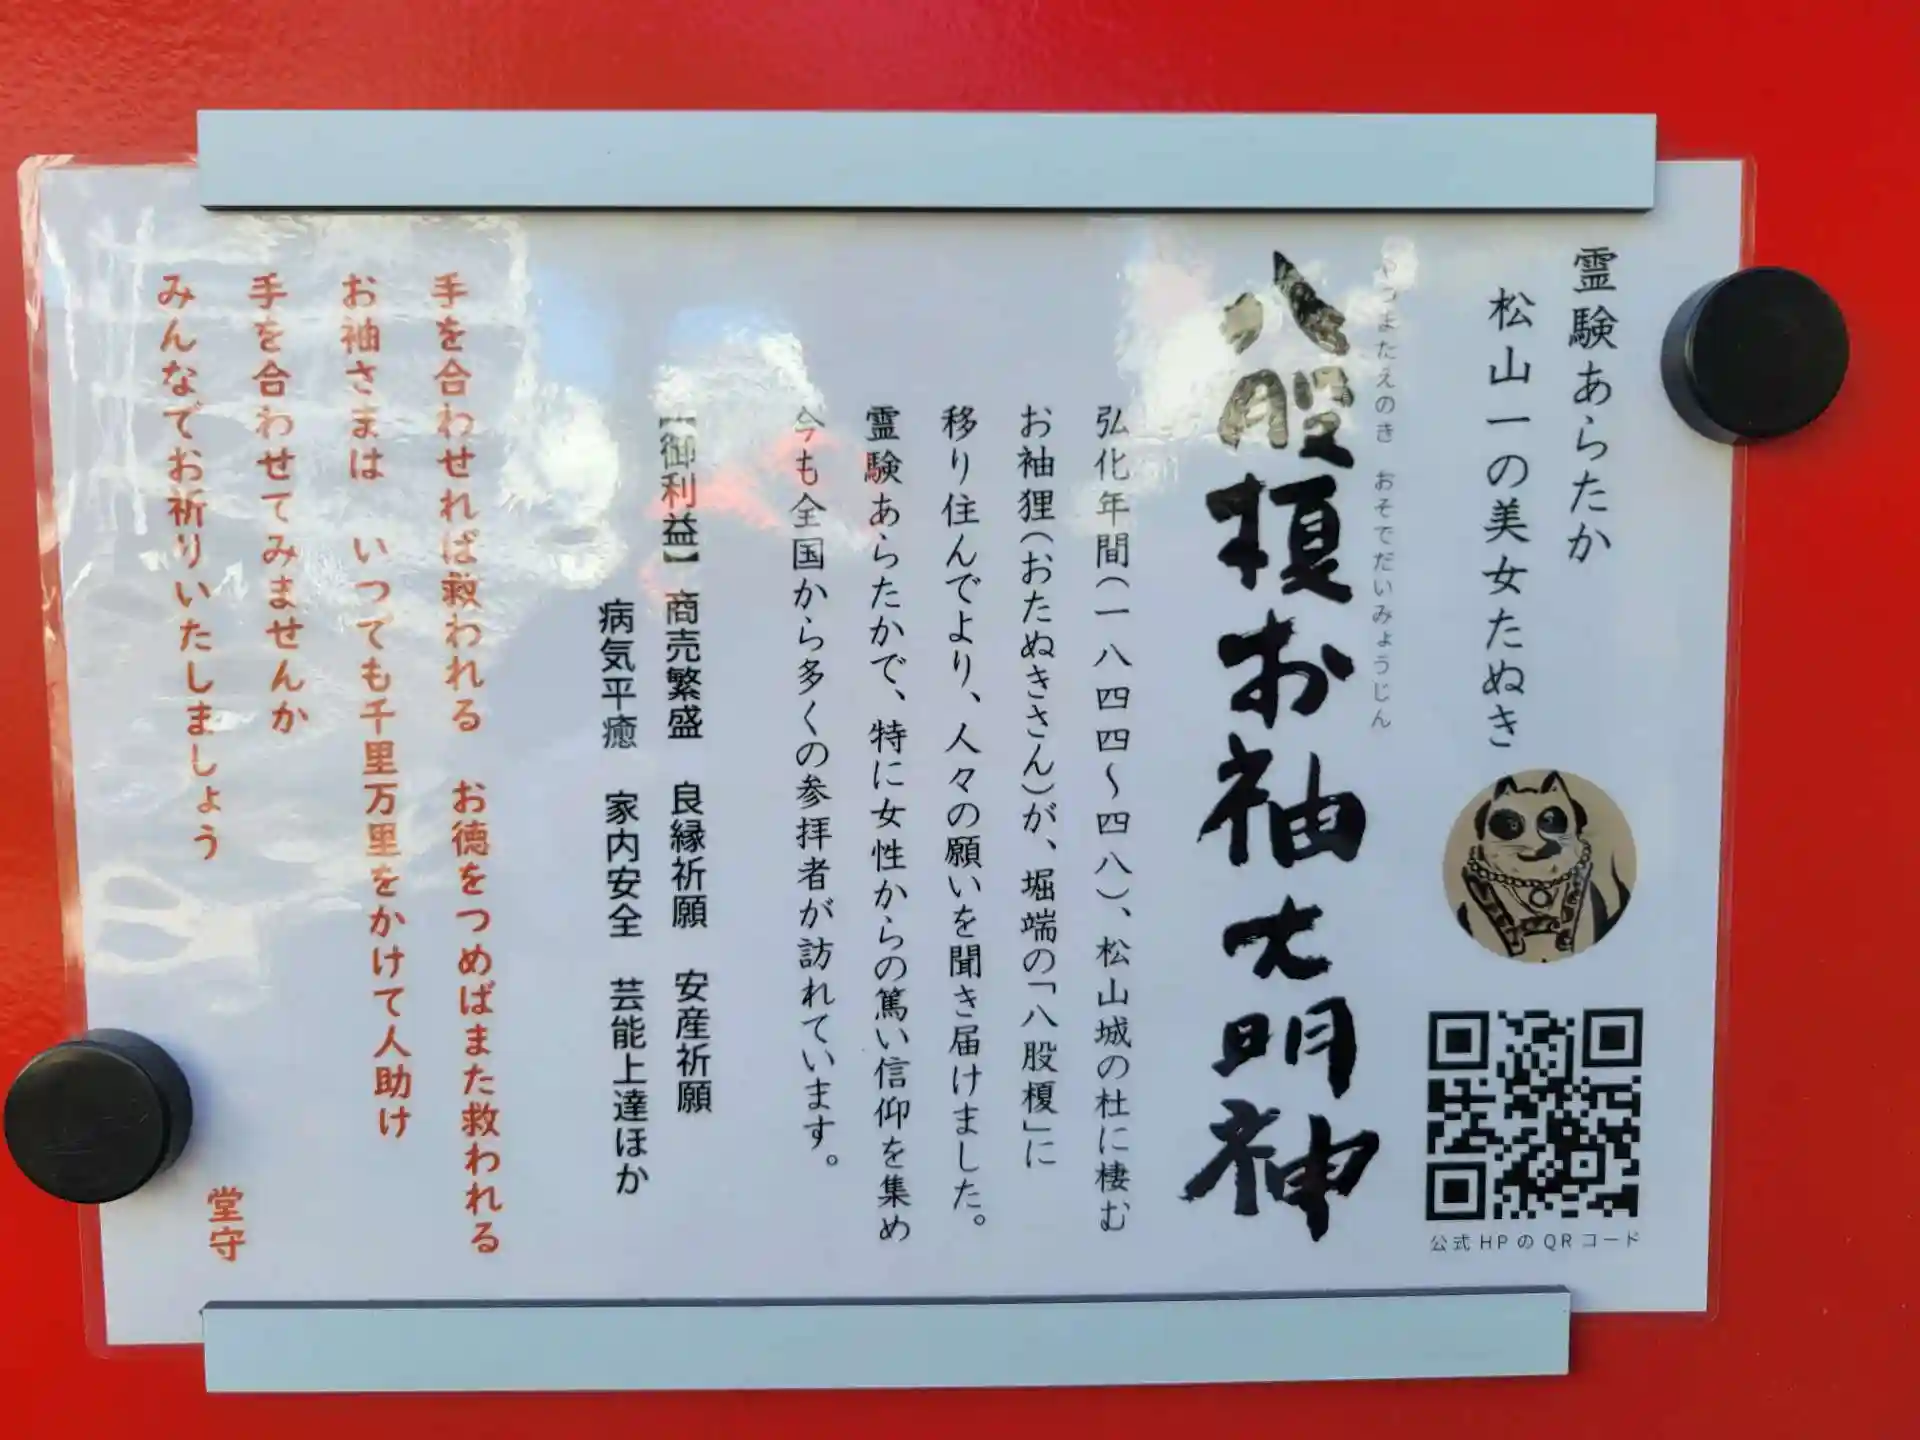 霊験あらたか
松山一の美女たぬき
やつまたえのき おそでだいみょうじん
八股榎お袖大明神
公式HPのQRコード
弘化年間(一八四四〜四八)、松山城の杜に棲む
お袖狸(おたぬきさん)が、堀端の「八股榎」に
移り住んでより、人々の願いを聞き届けました。
霊験あらたかで、特に女性からの篤い信仰を集め
今も全国から多くの参拝者が訪れています。
【御利益】 商売繁盛 良縁祈願 安産祈願
病気平癒 家内安全 芸能上達ほか
手を合わせれば救われる お徳をつめばまた救われる
お袖さまは いつても千里万里をかけて人助け
手を合わせてみませんか
みんなでお祈りいたしましょう
堂守